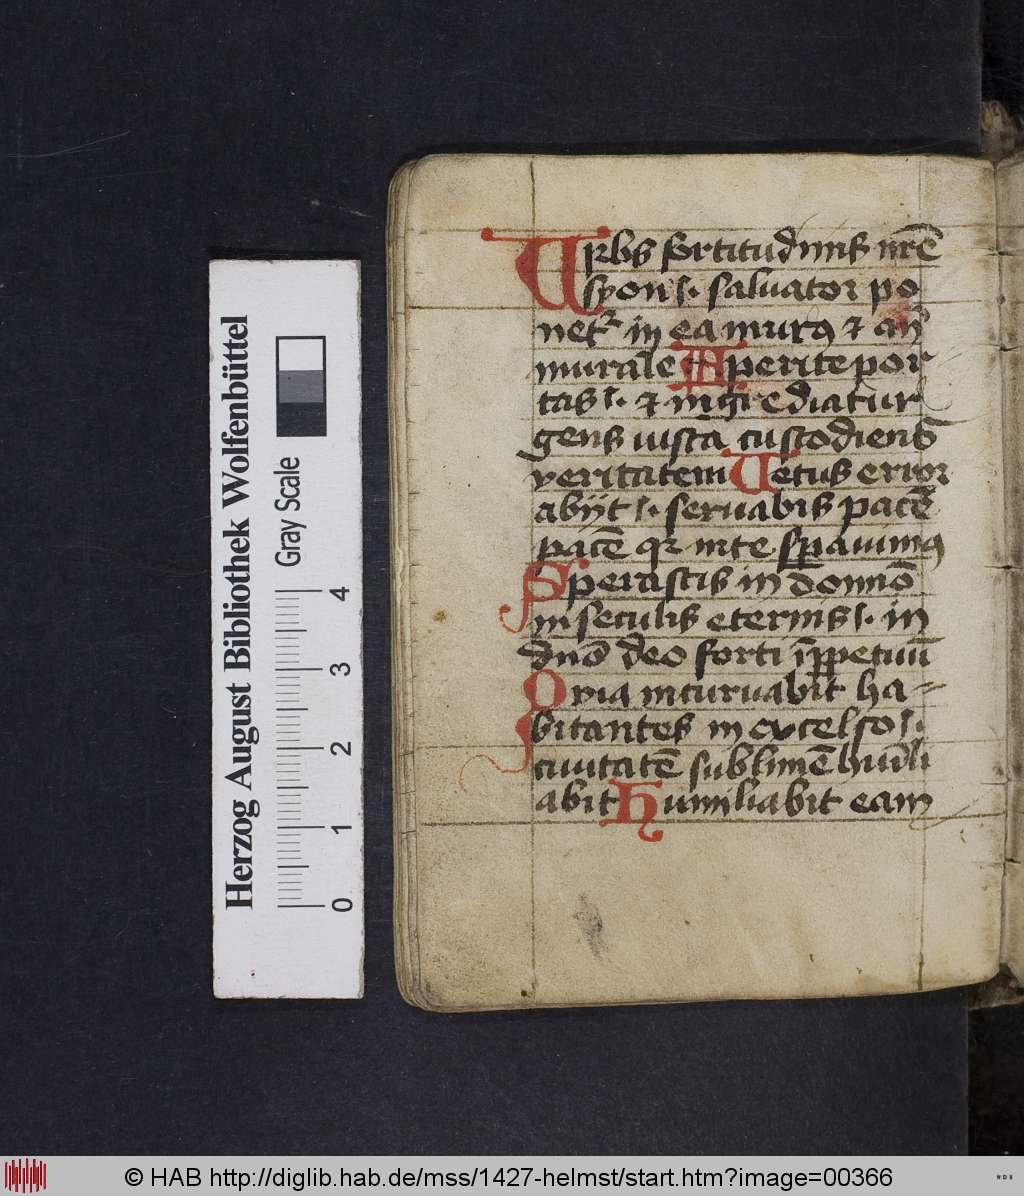 Urbs fortitudinis nrē
syon ⹎ saluator po
net᷑ in ea murꝯ ⁊ an̄
murale Aperite por
tas ⹎ ⁊ ingrediatur
gens iusta custodiens
veritatem Uetus error
abijt ⹎ seruabis pacē
pacē qr in te spauimꝯ
Sperastis in dominō
in seculis eternis ⹎ in
dnō deo forti ī ppetuū
Qvia incuruabit ha-
bitantes in excelso ⹎
ciuitatē sublimē humili
abit Humiliabit eam
Herzog August Bibliothek Wolfenbüttel
Gray Scale
0 1 2 3 4
© HAB http://diglib.hab.de/mss/1427-helmst/start.htm?image=00366